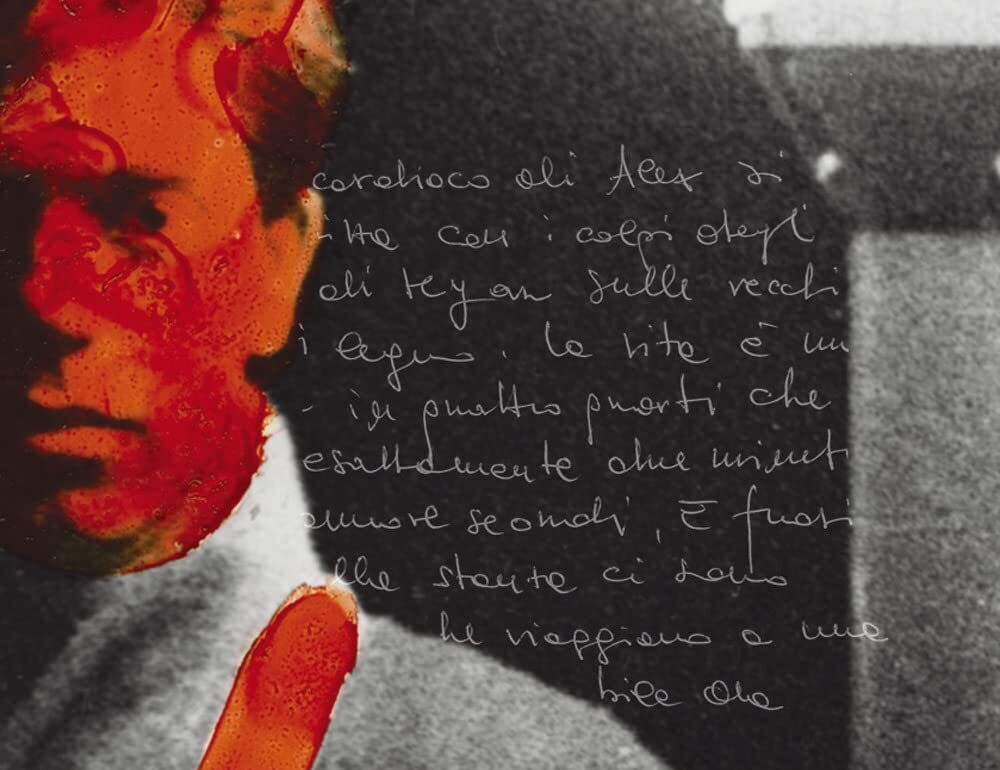 cardiaco di Alex si
itta con i colpi degli
di sulle vecchi
i legno. La vita è un
in quattro quarti che
esattamente due minuti
secondi, E fuori
lla stanza ci sono
he viaggiano a una
bile che